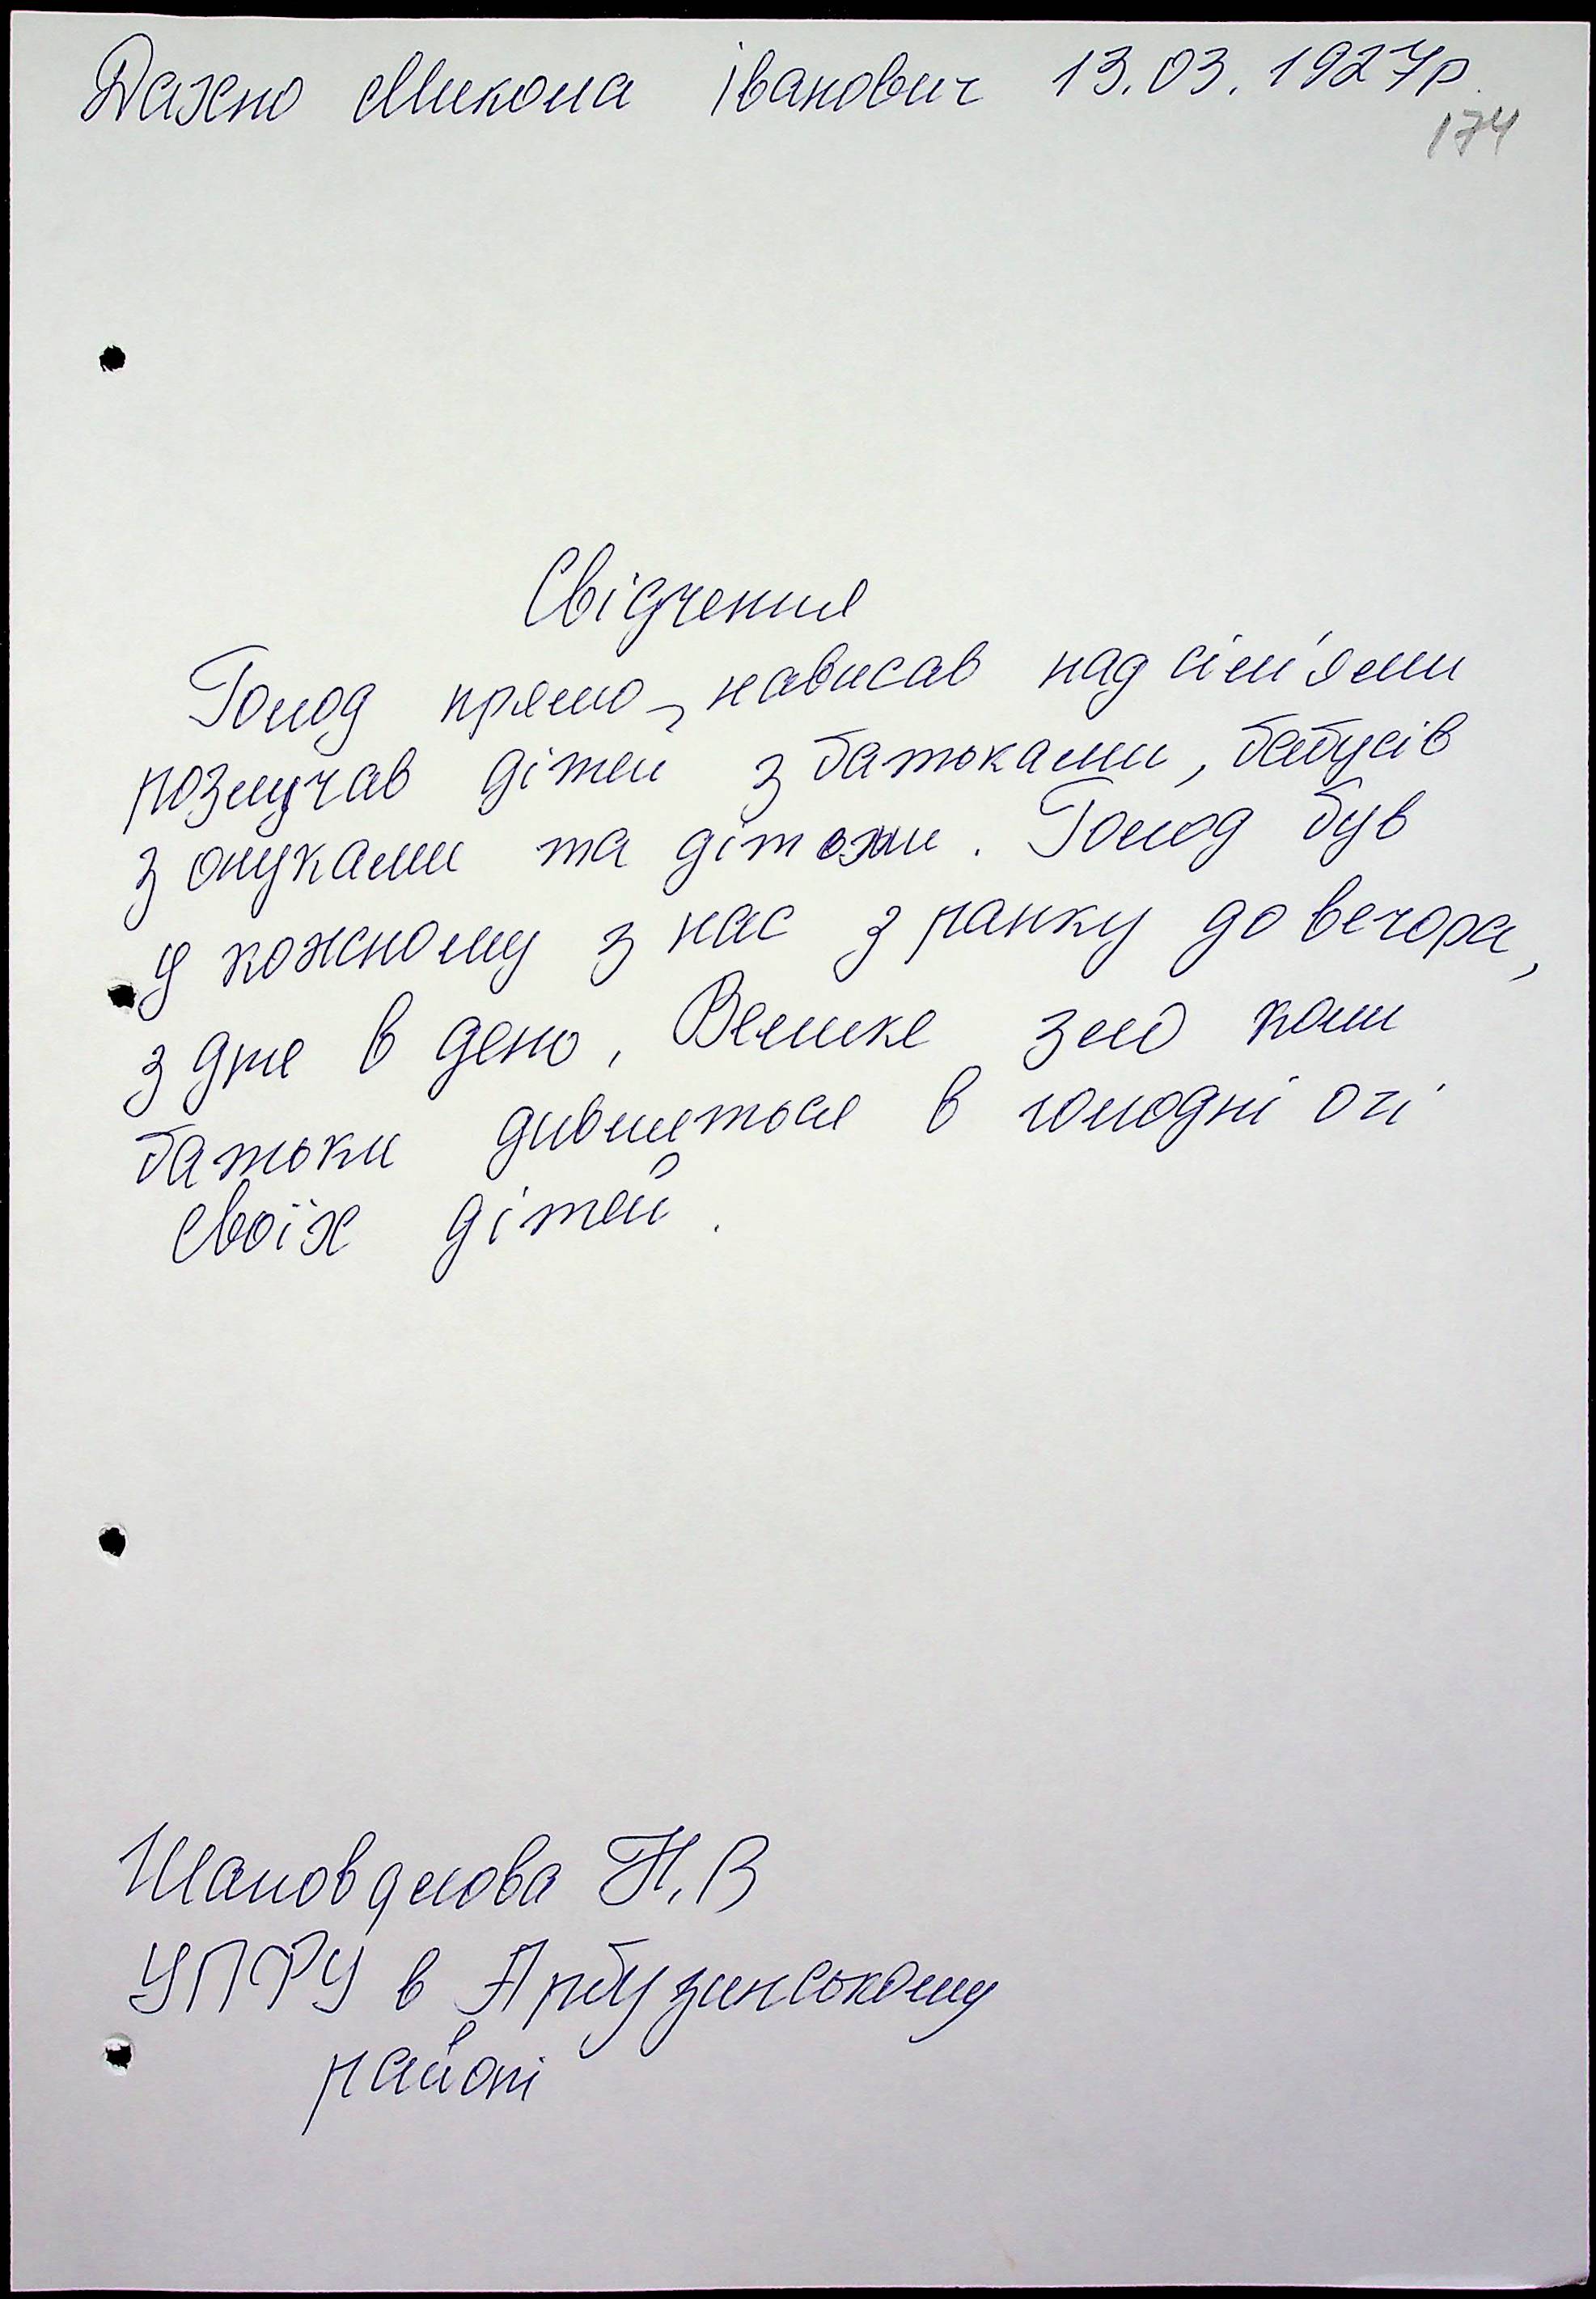 Дахно Микола Іванович 13.03.1927р.
174
Свідчення
Голод прямо нависав над сім'ями
розлучав дітей з батьками, бабусів
з онуками та дітьми. Голод був
у кожному з нас з ранку до вечора,
з дня в день, Велике зло коли
батьки дивляться в голодні очі
своїх дітей.
Шаповалова Н.В
УПФУ в Арбузинському
районі